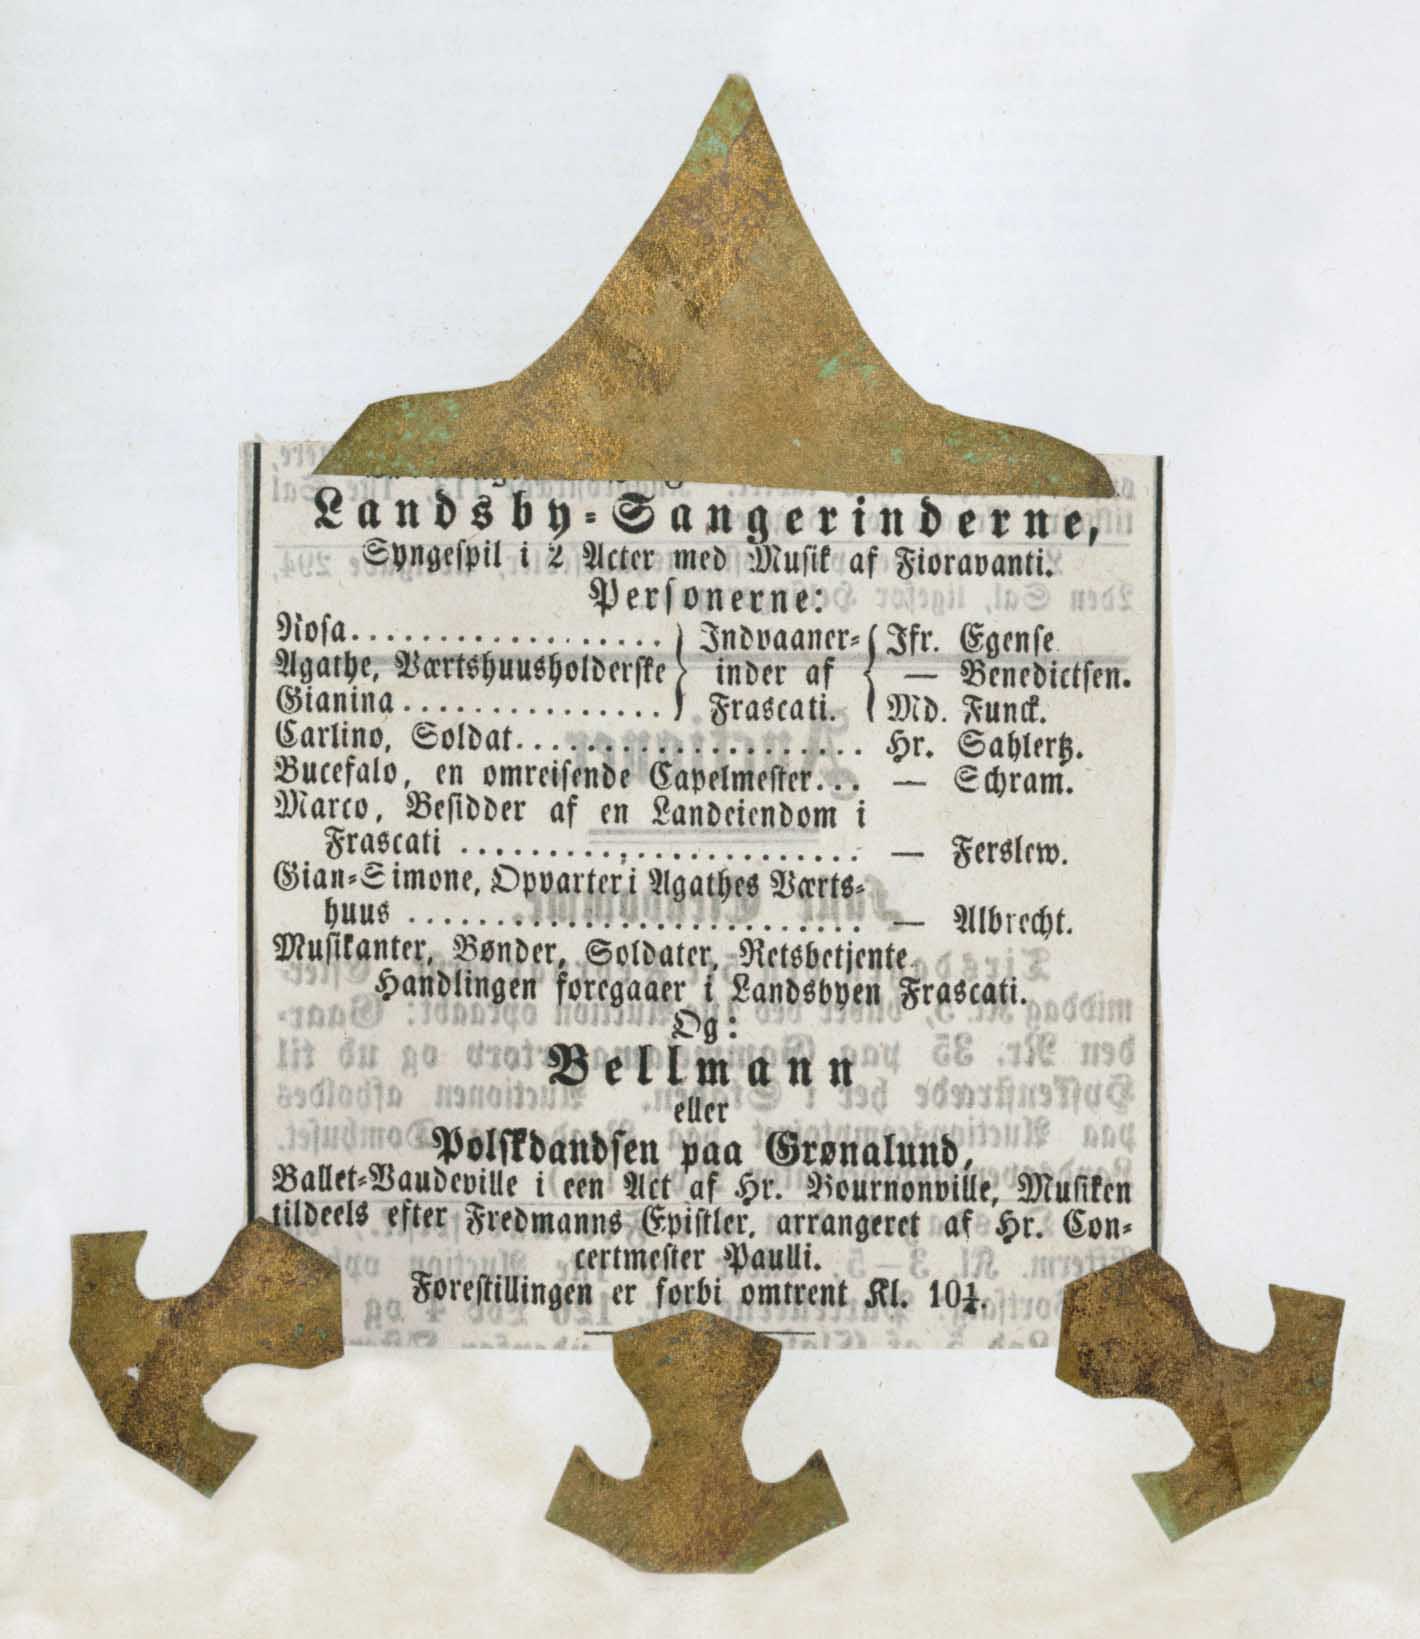 Landsby-Sangerinderne,
Syngespil i 2 Acter med Musik af Fioravanti.
Personerne:
Rosa................... } Indvaaner- { Jfr. Egense
Agathe, Værtshuusholderske } inder af { — Benedictsen.
Gianina................ } Frascati. { Md. Funck.
Carlino, Soldat.................... Hr. Sahlertz.
Bucefalo, en omreisende Capelmester... — Schram.
Marco, Besidder af en Landeiendom i
Frascati ........................ — Ferslew.
Gian-Simone, Opvarter i Agathes Værts-
huus ........................... — Albrecht.
Musikanter, Bønder, Soldater, Retsbetjente.
Handlingen foregaaer i Landsbyen Frascati.
Og:
Bellmann
eller
Polskdandsen paa Grønalund,
Ballet-Vaudeville i een Act af Hr. Bournonville, Musiken
tildeels efter Fredmanns Epistler, arrangeret af Hr. Con-
certmester Paulli.
Forestillingen er forbi omtrent Kl. 10½.